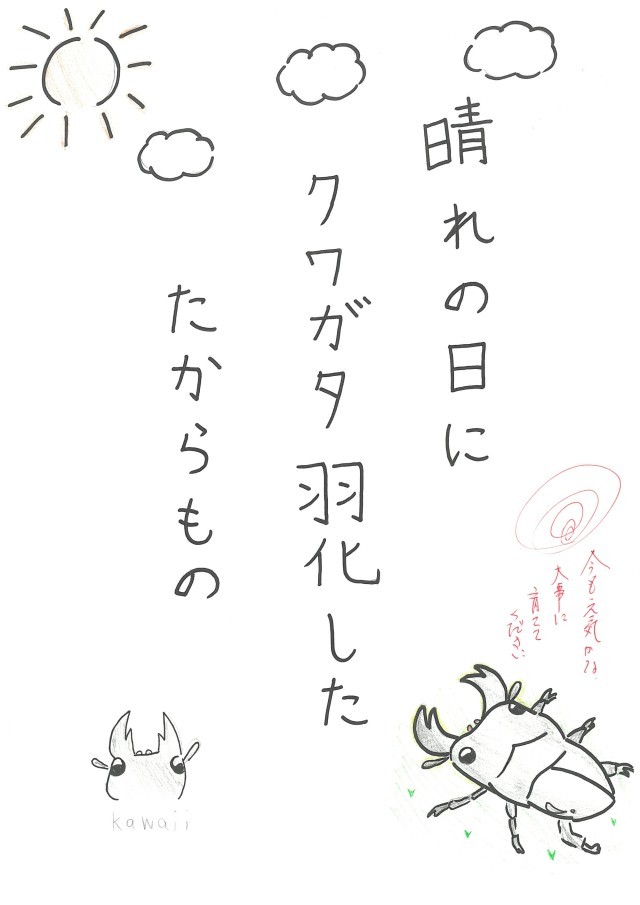 晴れの日に
クワガタ羽化した
たからもの
今も元気かな
大事に
育てて
ください
kawaii